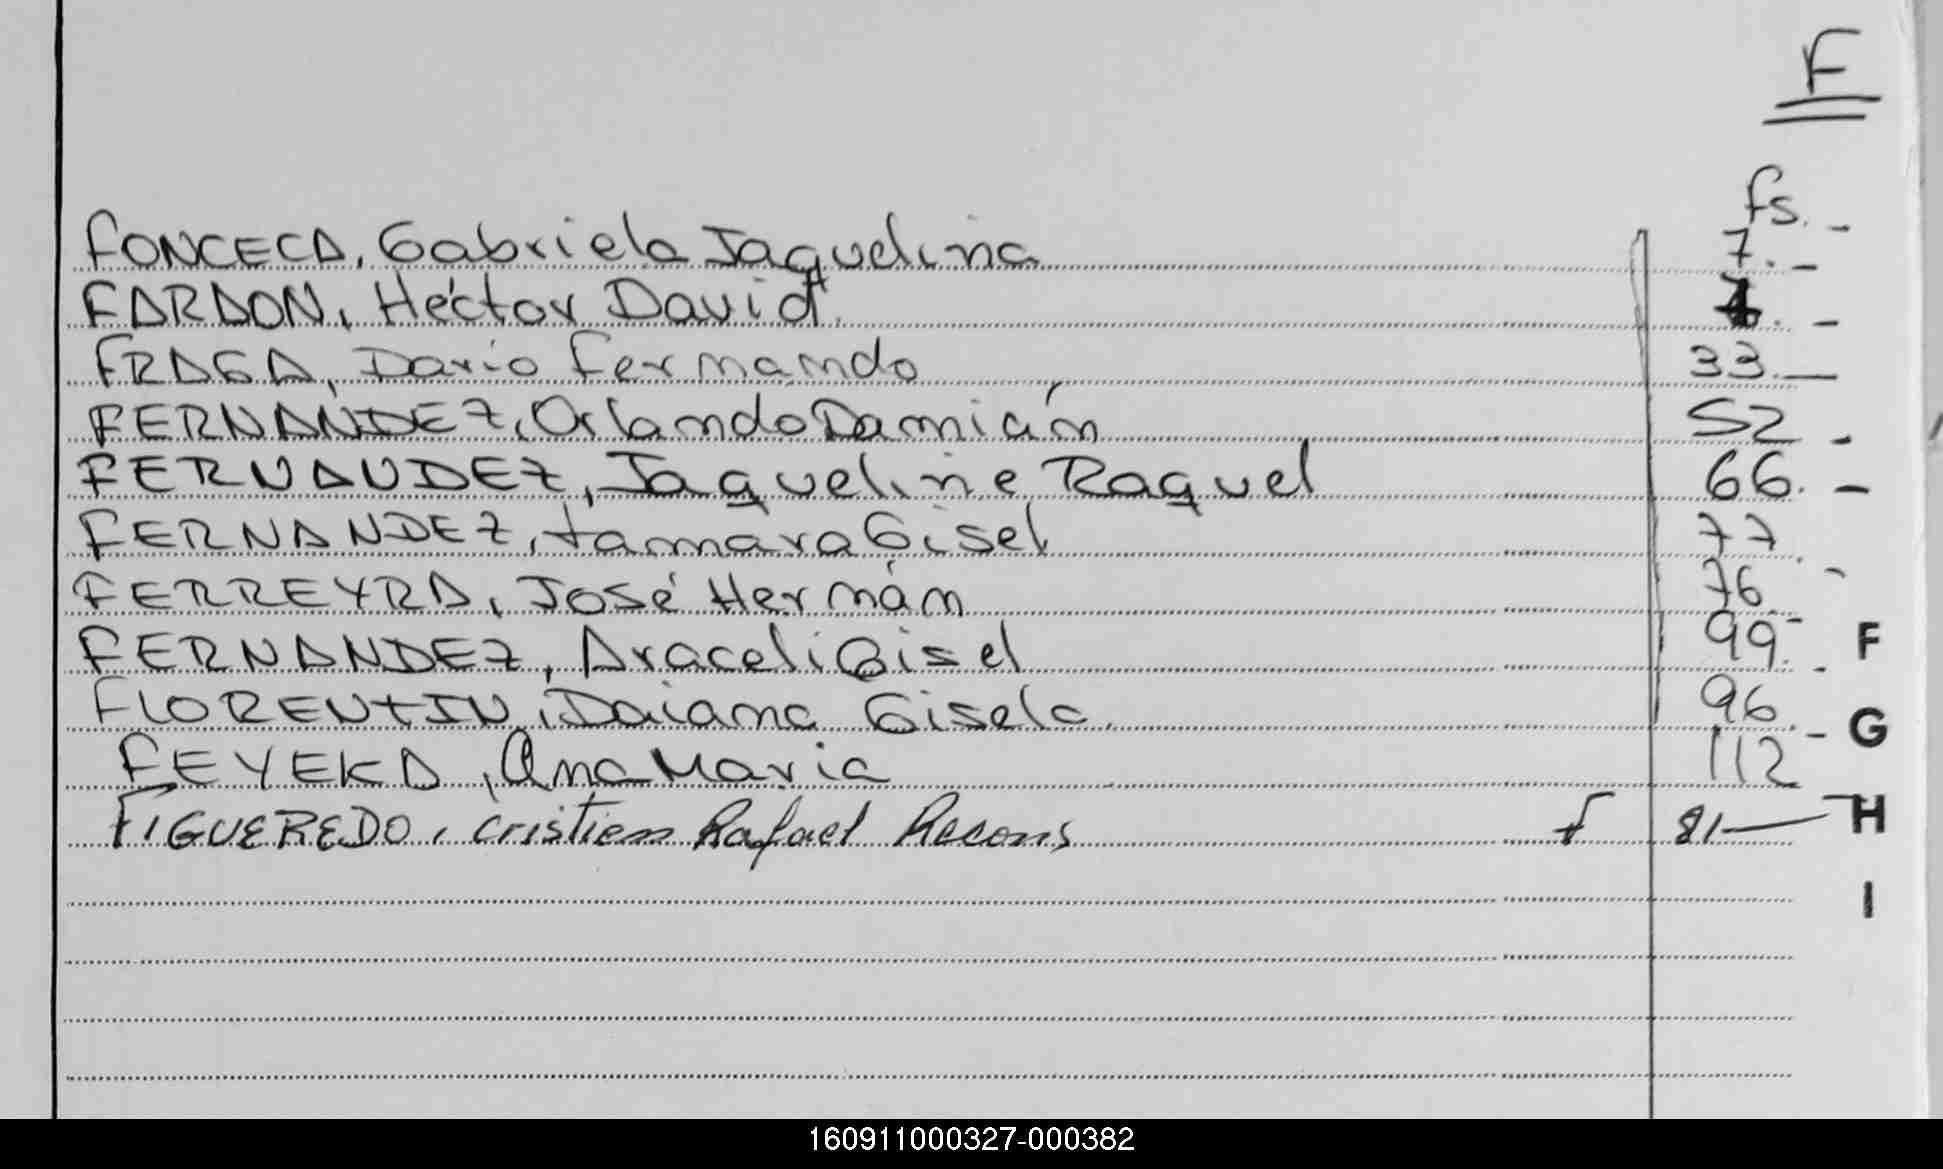 F
fs. -
FONCECA, Gabriela Jaquelina 7. -
FARDON, Héctor David. -
FRAGA, Dario Fernando 33. —
FERNANDEZ, Orlando Damián 52 -
FERNANDEZ, Jaqueline Raquel 66. -
FERNANDEZ, tamara Gisel 77.
FERREYRA, José Hernán 76. -
FERNANDEZ, Araceli Gisel 99. -
FLORENTIN, Daiana Gisela. 96. -
FEYEKA, Ana Maria 112
FIGUEREDO, Cristian Rafael f 81 —
F
G
H
I
160911000327-000382